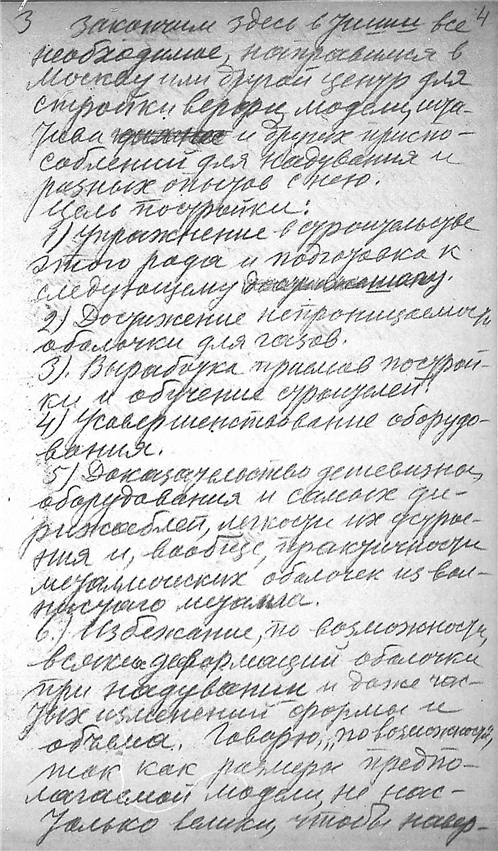 3 4
Закончим здесь в все
необходимое, направимся в
Москву или другой центр для
стройки верфи, модели, шта-
тива и других приспо-
соблений для надувания и
разных опытов с нею.
Цель постройки:
1) Упражнение в строительстве
этого рода и подготовка к
следующему
2) Достижение непроницаемости
оболочки для газов.
3) Выработка приемов построй-
ки и обучение строителей.
4) Усовершенствование оборудо-
вания.
5) Доказательство дешевизны
оборудования и самых ди-
рижаблей, легкости их устрое-
ния и, вообще, практичности
металлических оболочек из вол-
нистого металла.
6.) Избежание, по возможности,
всяких деформаций оболочки
при надувании и даже час-
тых изменений формы и
объема. Говорю, „по возможности",
так как размеры предпо-
лагаемой модели не нас-
только велики, чтобы навер-